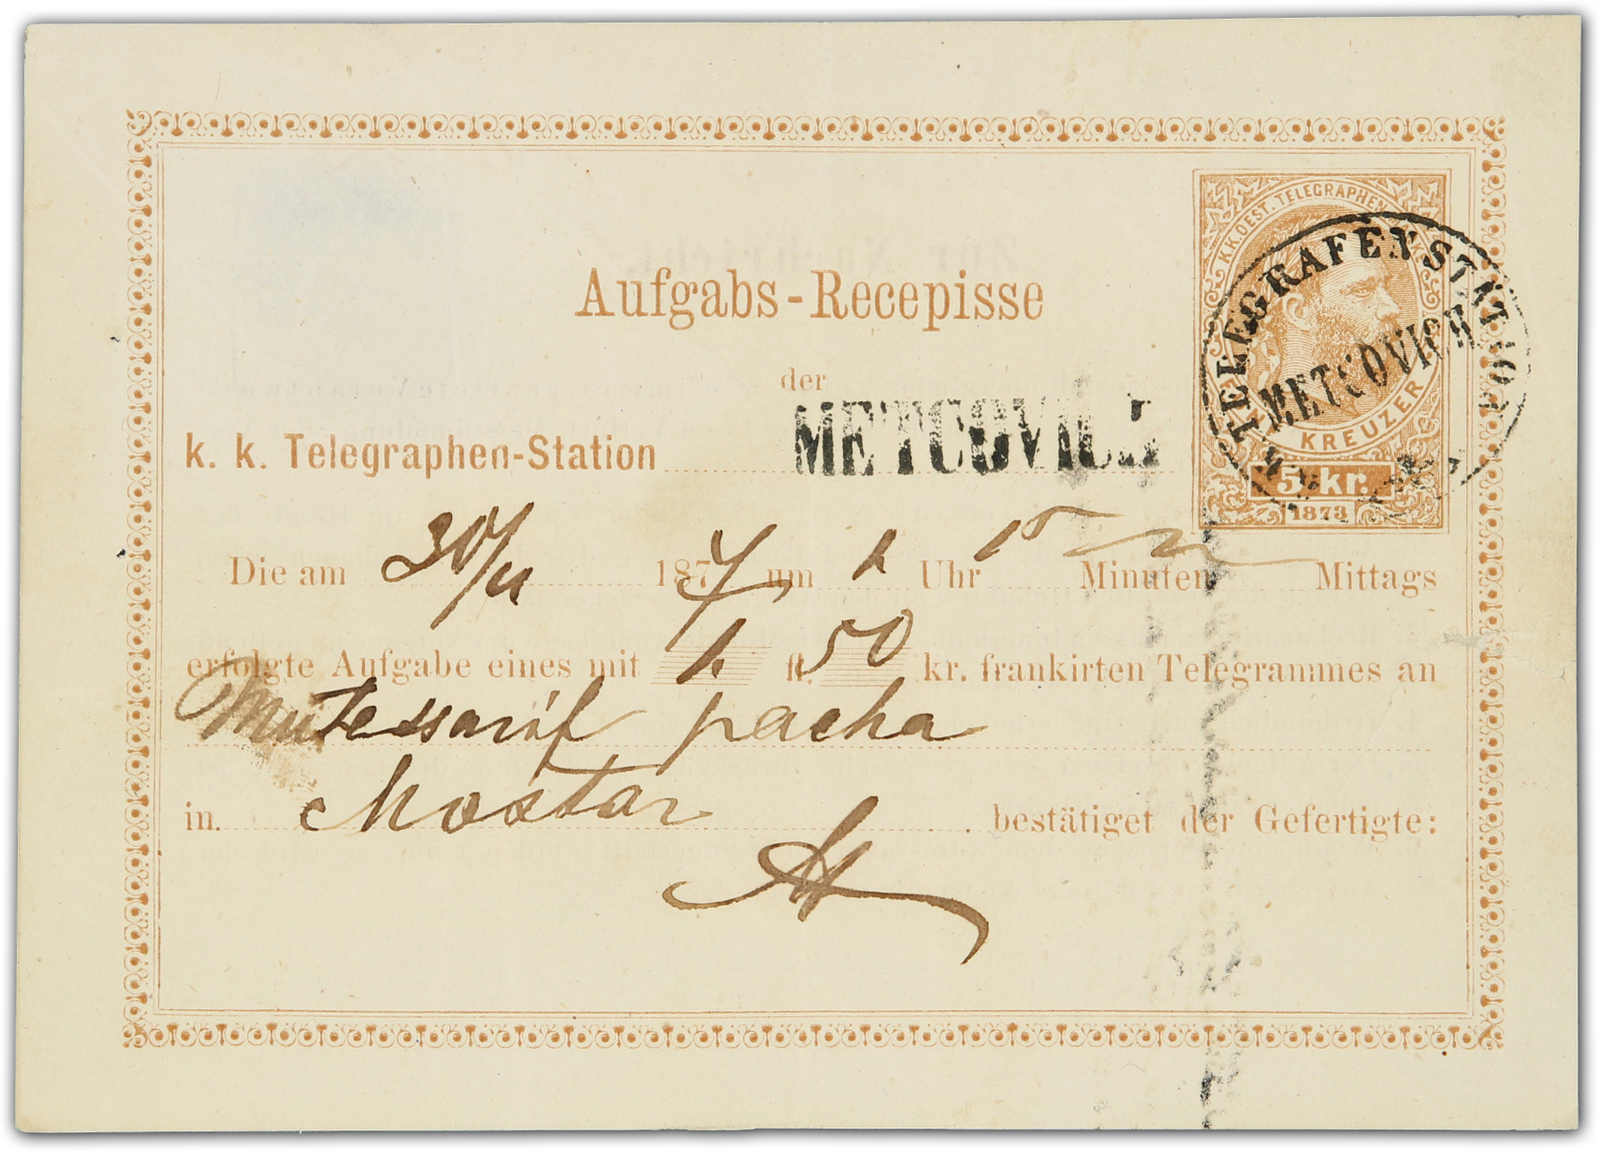 K.K. OEST. TELEGRAPHEN
KREUZER
5 kr.
1873
TELEGRAFENSTATION
METCOVICH
Aufgabs-Recepisse
der
k. k. Telegraphen-Station METCOVICH
Die am 30/11 1874 um 1 Uhr 15 Minuten Mittags
erfolgte Aufgabe eines mit 1. fl. 50 kr. frankirten Telegrammes an
Mutessarif pacha
in Mostar bestätiget der Gefertigte: